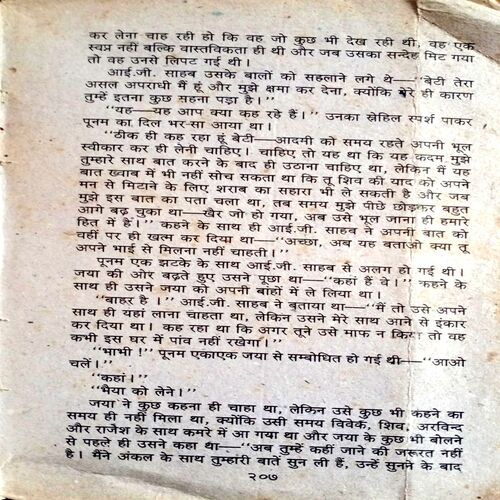 कर लेना चाह रही हो कि वह जो कुछ भी देख रही थी, वह एक
स्वप्न नहीं बल्कि वास्तविकता ही थी और जब उसका सन्देह मिट गया
तो वह उनसे लिपट गई थी।
आई.जी. साहब उसके बालों को सहलाने लगे थे—''बेटी तेरा
असल अपराधी मैं हूं और मुझे क्षमा कर देना, क्योंकि मेरे ही कारण
तुम्हें इतना कुछ सहना पड़ा है।''
''यह—यह आप क्या कह रहे हैं।'' उनका स्नेहिल स्पर्श पाकर
पूनम का दिल भर-सा आया था।
''ठीक ही कह रहा हूं बेटी—आदमी को समय रहते अपनी भूल
स्वीकार कर ही लेनी चाहिए। चाहिए तो यह था कि यह कदम मुझे
तुम्हारे साथ बात करने के बाद ही उठाना चाहिए था, लेकिन मैं यह
बात ख्वाब में भी नहीं सोच सकता था कि तू शिव की याद को अपने
मन से मिटाने के लिए शराब का सहारा भी ले सकती है और जब
मुझे इस बात का पता चला था, तब समय मुझे पीछे छोड़कर बहुत
आगे बढ़ चुका था—खैर जो हो गया, अब उसे भूल जाना ही हमारे
हित में है।'' कहने के साथ ही आई.जी. साहब ने अपनी बात को
वहीं पर ही खत्म कर दिया था—''अच्छा, अब यह बताओ क्या तू
अपने भाई से मिलना नहीं चाहती।''
पूनम एक झटके के साथ आई.जी. साहब से अलग हो गई थी।
जया की ओर बढ़ते हुए उसने पूछा था—''कहां हैं वे।'' कहने के
साथ ही उसने जया को अपनी बांहों में ले लिया था।
''बाहर है।'' आई.जी. साहब ने बताया था—''मैं तो उसे अपने
साथ ही यहां लाना चाहता था, लेकिन उसने मेरे साथ आने से इंकार
कर दिया था। कह रहा था कि अगर तूने उसे माफ न किया तो वह
कभी इस घर में पांव नहीं रखेगा।''
''भाभी!'' पूनम एकाएक जया से सम्बोधित हो गई थी—''आओ
चलें।''
''कहां।''
''भैया को लेने।''
जया ने कुछ कहना ही चाहा था, लेकिन उसे कुछ भी कहने का
समय ही नहीं मिला था, क्योंकि उसी समय विवेक, शिव, अरविन्द
और राजेश के साथ कमरे में आ गया था और जया के कुछ भी बोलने
से पहले ही उसने कहा था—''अब तुम्हें कहीं जाने की जरूरत नहीं
है। मैंने अंकल के साथ तुम्हारी बातें सुन ली हैं, उन्हें सुनने के बाद
२०७